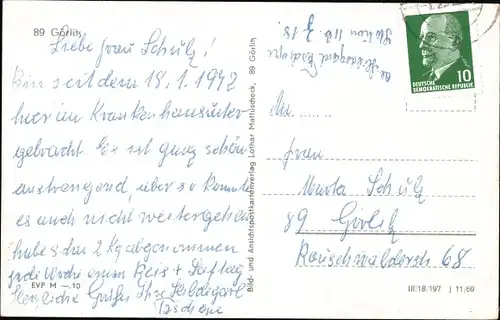 89 Görlitz
Liebe Frau Schulz!
Bin seit dem 18.1.1972
hier im Krankenhaus unter
gebracht. Es ist ganz schön
anstrengend, aber so konnte
es auch nicht weitergehen
habe schon 2 Kg abgenommen
jede Woche einen Reis + Safttag
Herzliche Grüße Ihre Hildegard
EVP M —.10
Bild- und Ansichtspostkartenverlag Lothar Mattuscheck, 89 Görlitz
Hildegard
Station
10
DEUTSCHE
DEMOKRATISCHE REPUBLIK
An ......
Frau
Marta Schulz
89 Görlitz
Rauschwalderstr. 68
III/18/197 J 11/69